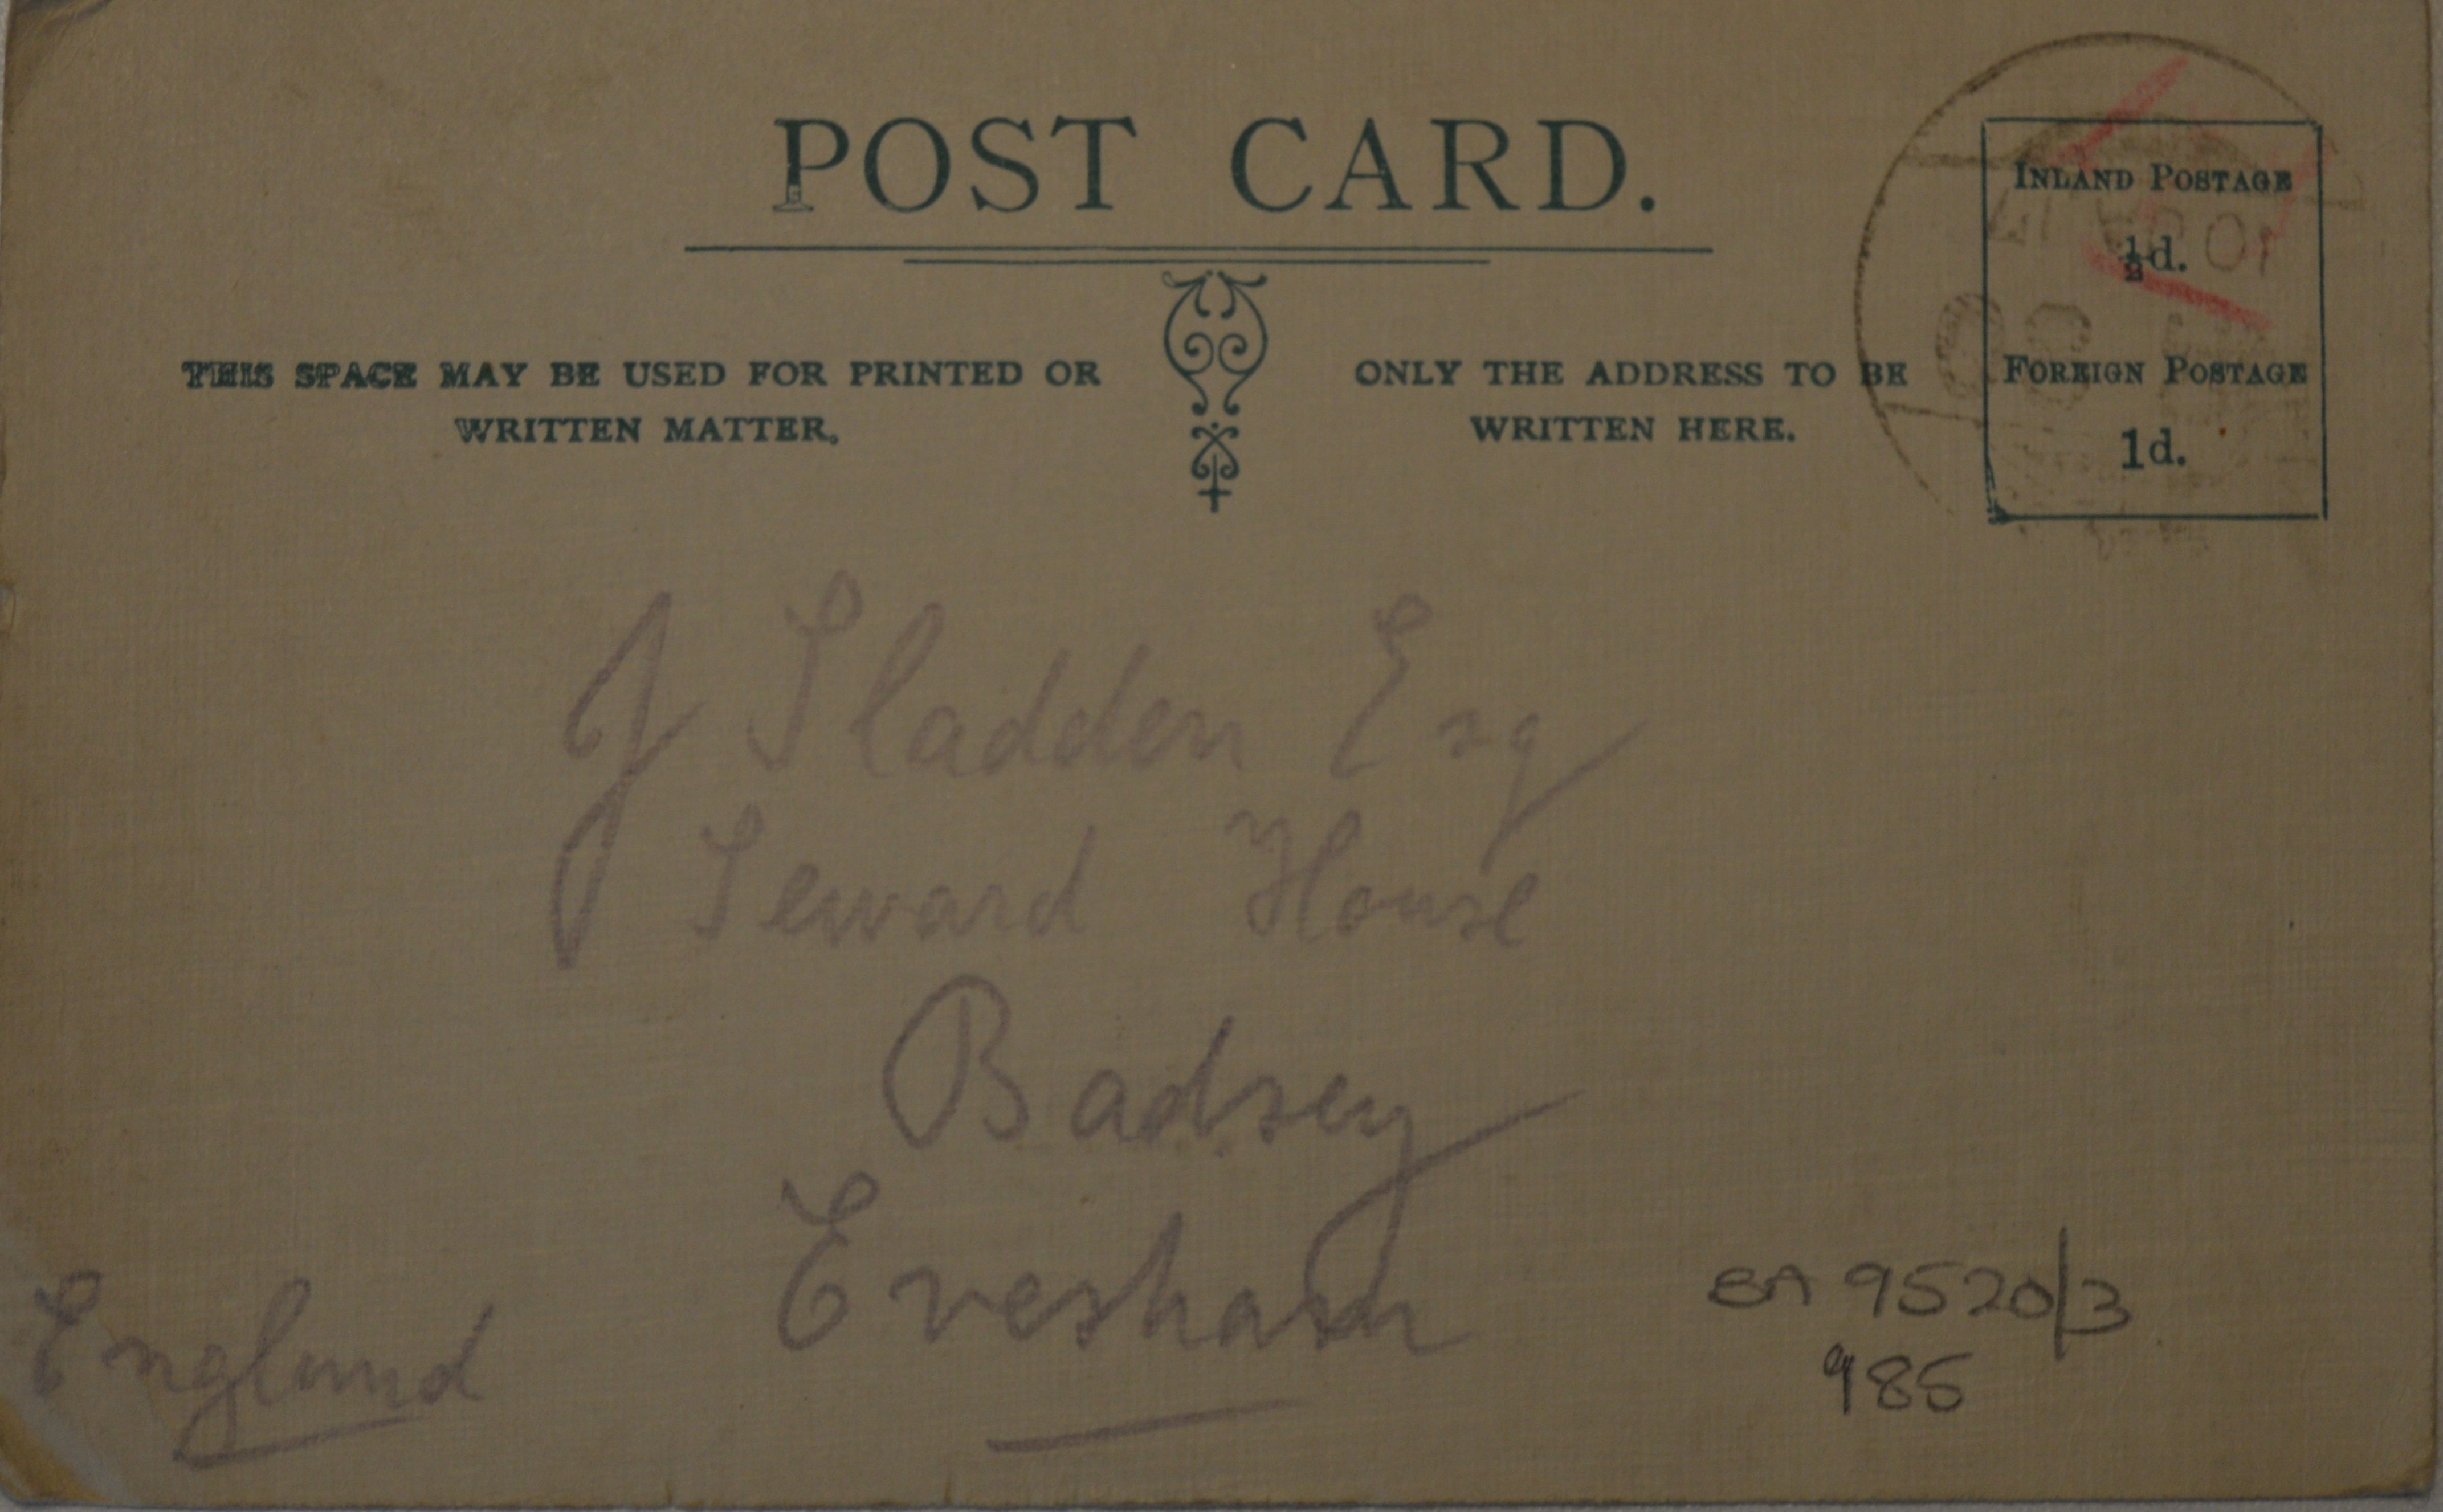 POST CARD.
INLAND POSTAGE
½d.
FOREIGN POSTAGE
1d.
THIS SPACE MAY BE USED FOR PRINTED OR
WRITTEN MATTER.
ONLY THE ADDRESS TO BE
WRITTEN HERE.
J Sladden Esq
Seward House
Badsey
Evesham
England
BA 9520/3
985